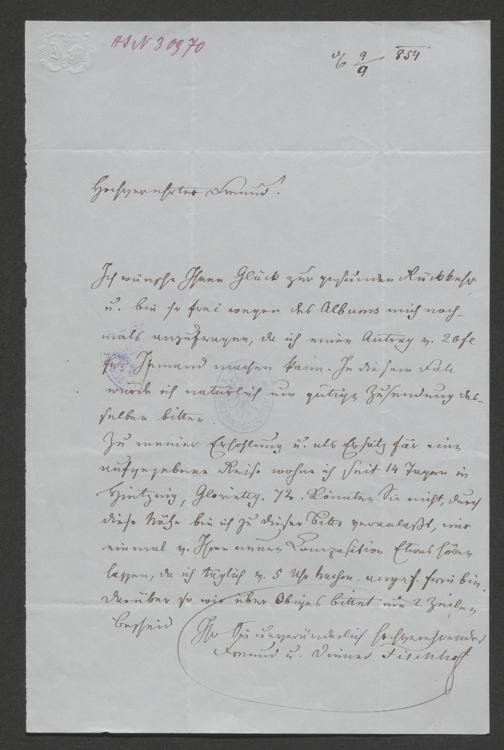 ASN 30970
9/9 854
Hochverehrter Freund!
Ich wünsche Ihnen Glück zur gesunden Rückkehr
u. bin so frei wegen des Albums mich noch-
mals anzufragen, da ich einen Antrag v. 20 fl
für Jemand machen kann. In diesem Falle
würde ich natürlich um gütige Zusendung des-
selben bitten
Zu meiner Erholung u. als Ersatz für eine
aufgegebene Reise wohne ich seit 14 Tagen in
Hietzing, Gloriettg. 72. Könnten Sie nicht, durch
diese Nähe bin ich zu dieser Bitte veranlaßt, mir
einmal v. Ihren neuen Composition Etwas hören
lassen, da ich täglich v. 5 Uhr Nachm. angef. frei bin.
Darüber so wie über Obiges bittet um 2 Zeilen
Bescheid
Ihr Sie unveränderlich hochverehrender
Freund u. Diener Fischhof